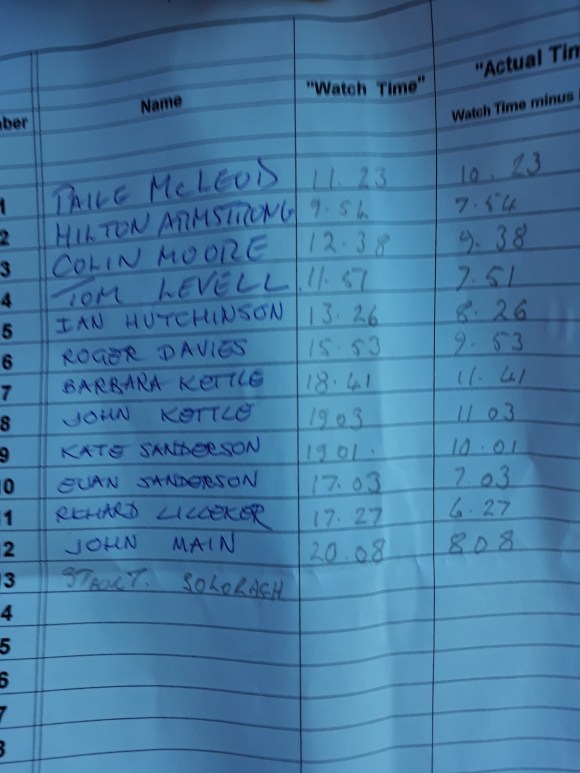 "Actual Tim
"Watch Time"
Name
Watch Time minus
ber
1 PAIGE McLEOD 11.23 10.23
2 HILTON ARMSTRONG 9.54 7.54
3 COLIN MOORE 12.38 9.38
4 TOM LEVELL 11.51 7.51
5 IAN HUTCHINSON 13.26 8.26
6 ROGER DAVIES 15.53 9.53
7 BARBARA KETTLE 18.41 11.41
8 JOHN KETTLE 19.03 11.03
9 KATE SANDERSON 19.01. 10.01
0 EUAN SANDERSON 17.03 7.03
1 RICHARD LILLEKER 17.27 6.27
2 JOHN MAIN 20.08 808
3 START.
4
5
6
7
8